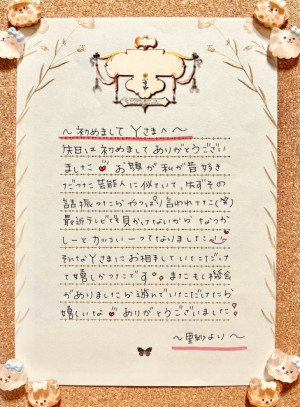 ～初めまして Yさまへ～
先日は初めましてありがとうござい
ました お顔が私が昔好き
だった芸能人に似ていて、出ずその
話振ったらやっぱり言われてた(笑)
最近テレビで見かけてないからなつか
しーとカッコいーってなりました
そんなYさまにお相手していただけ
て嬉しかったです。またもし機会
がありましたら遊んでいただけたら
嬉しいな ありがとうございました!
～里 より～